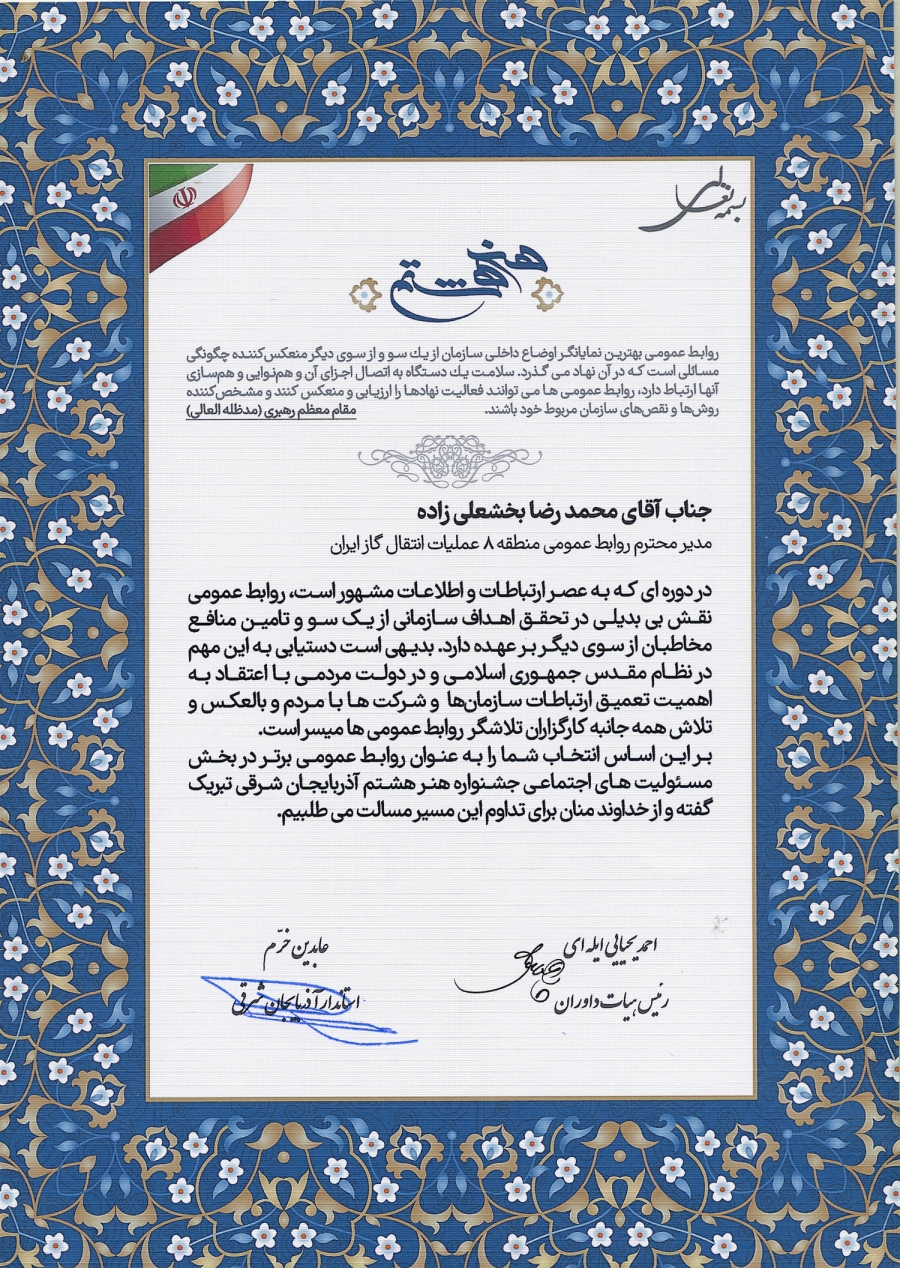 بسمه تعالی
هنر هشتم
روابط عمومی بهترین نمایانگر اوضاع داخلی سازمان از یك سو و از سوی دیگر منعکس‌کننده چگونگی
مسائلی است که در آن نهاد می گذرد. سلامت یك دستگاه به اتصال اجزای آن و هم‌نوایی و هم‌سازی
آنها ارتباط دارد، روابط عمومی ها می توانند فعالیت نهادها را ارزیابی و منعکس کنند و مشخص‌کننده
روش‌ها و نقص‌های سازمان مربوط خود باشند. مقام معظم رهبری (مدظله العالی)
جناب آقای محمد رضا بخشعلی زاده
مدیر محترم روابط عمومی منطقه ۸ عملیات انتقال گاز ایران
در دوره ای که به عصر ارتباطات و اطلاعات مشهور است، روابط عمومی
نقش بی بدیلی در تحقق اهداف سازمانی از یک سو و تامین منافع
مخاطبان از سوی دیگر بر عهده دارد. بدیهی است دستیابی به این مهم
در نظام مقدس جمهوری اسلامی و در دولت مردمی با اعتقاد به
اهمیت تعمیق ارتباطات سازمان‌ها و شرکت ها با مردم و بالعکس و
تلاش همه جانبه کارگزاران تلاشگر روابط عمومی ها میسر است.
بر این اساس انتخاب شما را به عنوان روابط عمومی برتر در بخش
مسئولیت های اجتماعی جشنواره هنر هشتم آذربایجان شرقی تبریک
گفته و از خداوند منان برای تداوم این مسیر مسالت می طلبیم.
احمد یحیایی ایله ای
رئیس هیات داوران
عابدین خرّم
استاندار آذربایجان شرقی